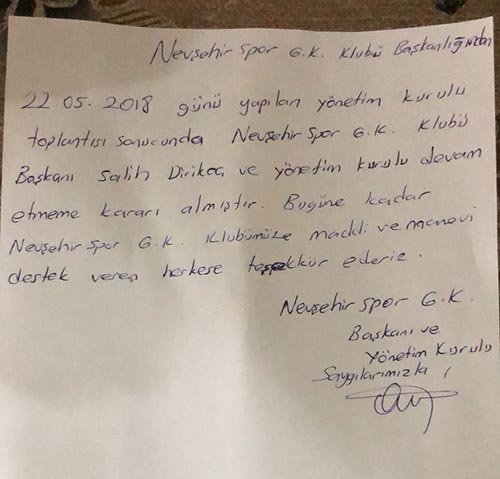 Nevşehir Spor G.K. Klubü Başkanlığından
22.05.2018 günü yapılan yönetim kurulu
toplantısı sonucunda Nevşehir Spor G.K. Klubü
Başkanı Salih Dirikoç ve yönetim kurulu devam
etmeme kararı almıştır. Bugüne kadar
Nevşehir Spor G.K. Klubümüze maddi ve manevi
destek veren herkese teşekkür ederiz.
Nevşehir Spor G.K.
Başkanı ve
Yönetim Kurulu
Saygılarımızla